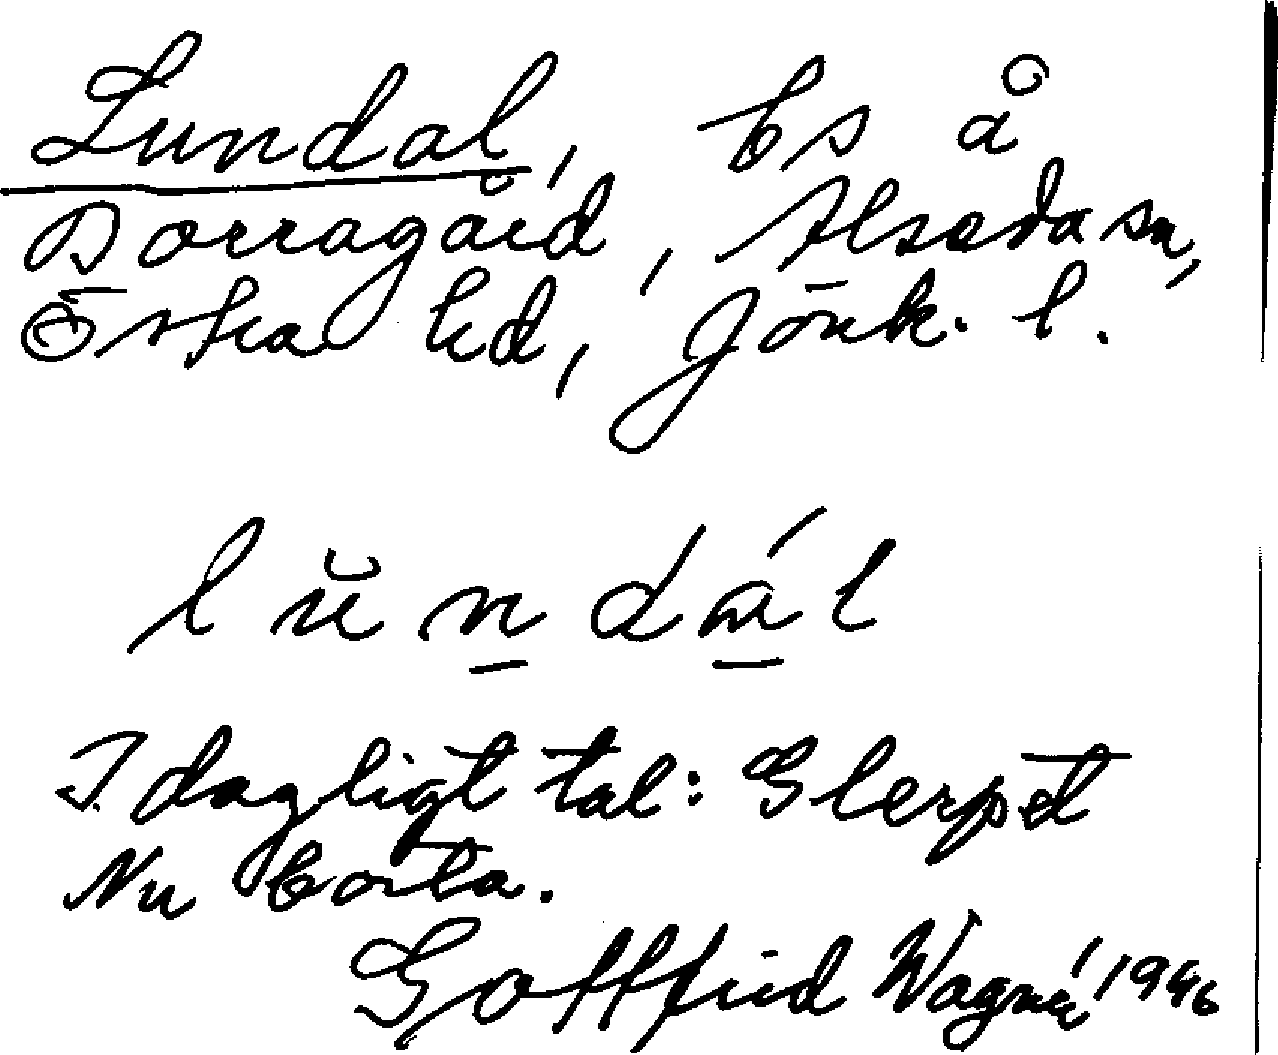 Lundal, bs å
Borragård, Alseda sn,
Östra hd, Jönk. l.
lŭndál
I dagligt tal: Glerpet
Nu borta.
Gottfrid Wagnér 1946